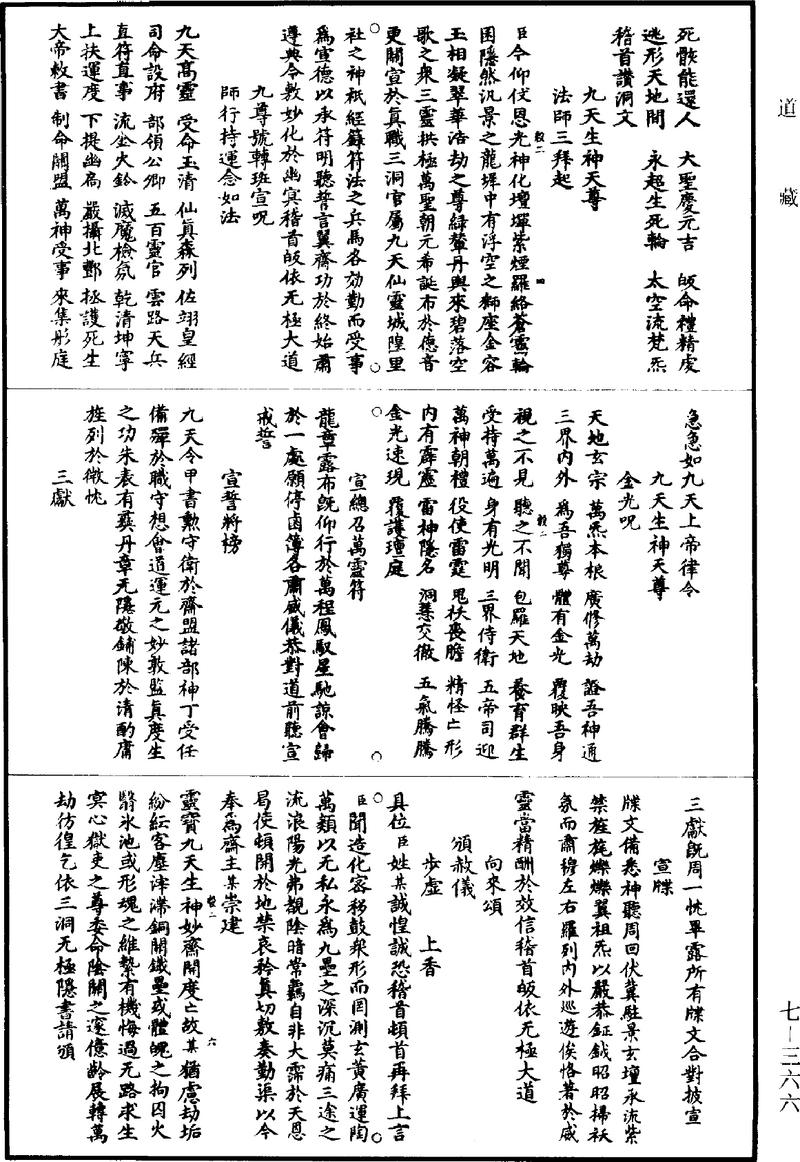 道藏
死骸能還人　大聖慶元吉　皈命禮精虔
逃形天地間　永超生死輪　太空流梵炁
稽首讚洞文
九天生神天尊
法師三拜起
臣今仰仗恩光神化壇墠紫煙羅絡蒼靈輪
囷隱然汎景之龍墀中有浮空之獅座金容
玉相凝翠華浩劫之尊綠輦丹輿來碧落空
歌之衆三靈拱極萬聖朝元希誕布於德音
更開宣於真職三洞官屬九天仙靈城隍里
社之神祇經籙符法之兵馬各効勤而受事
爲宣德以承符明聽誓言翼齋功於終始肅
遵典令敷妙化於幽冥稽首皈依无極大道
九尊號轉班宣呪
師行持運念如法
九天高靈　受命玉清　仙真森列　佐翊皇經
司命設府　部領公卿　五百靈官　雲路天兵
直符直事　流坐火鈴　滅魔檢氛　乾清坤寧
上扶運度　下提幽扃　嚴攝北酆　極護死生
大帝敕書　制命關盟　萬神受事　來集彤庭
急急如九天上帝律令
九天生神天尊
金光呪
天地玄宗　萬炁本根　廣修萬劫　證吾神通
三界内外　爲吾獨尊　體有金光　覆映吾身
視之不見　聽之不聞　包羅天地　養育群生
受持萬遍　身有光明　三界侍衛　五帝司迎
萬神朝禮　役使雷霆　鬼祅喪膽　精怪亡形
内有霹靂　雷神隱名　洞慧交徹　五氣騰騰
金光速現　覆護壇庭
宣總召萬靈符
龍章露布旣仰行於萬程鳳馭星馳諒會歸
於一處願停鹵簿各肅威儀恭對道前聽宣
戒誓
宣誓將榜
九天令甲書勲守衛於齋盟諸部神丁受任
備殫於職守想會道運元之妙敦監真度生
之功朱表有蕆丹章无隱敬鋪陳於清酌庸
旌列於微忱
三獻
三獻旣周一忱畢露所有牒文合對披宣
宣牒
牒文備悉神聽周回伏冀駐景玄壇承流紫
禁旌旄爍爍翼祖炁以嚴恭鉦鉞昭昭掃祅
氛而肅穆左右羅列内外巡遊俟恪著於感
靈當精酬於效信稽首皈依无極大道
向來頌
頒赦儀
步虛　上香
具位臣姓某誠惶誠恐稽首頓首再拜上言
臣聞造化密移鼓衆形而罔測玄黄廣運陶
萬類以无私永爲九壘之深沉莫痛三途之
流浪陽光弗覩陰暗常羈自非大霈於天恩
局使頓開於地禁哀矜真切敷奏勤渠以今
奉爲齋主某崇建
靈寶九天生神妙齋開度亡故某猶慮劫垢
紛紜客塵滓滯銅關鐵壘或體魄之拘囚火
翳氷池或形魂之維縶有機悔過无路求生
冥心獄吏之尊委命陰關之邃億齡展轉萬
劫彷徨乞依三洞无極隱書請頒
七—三六六